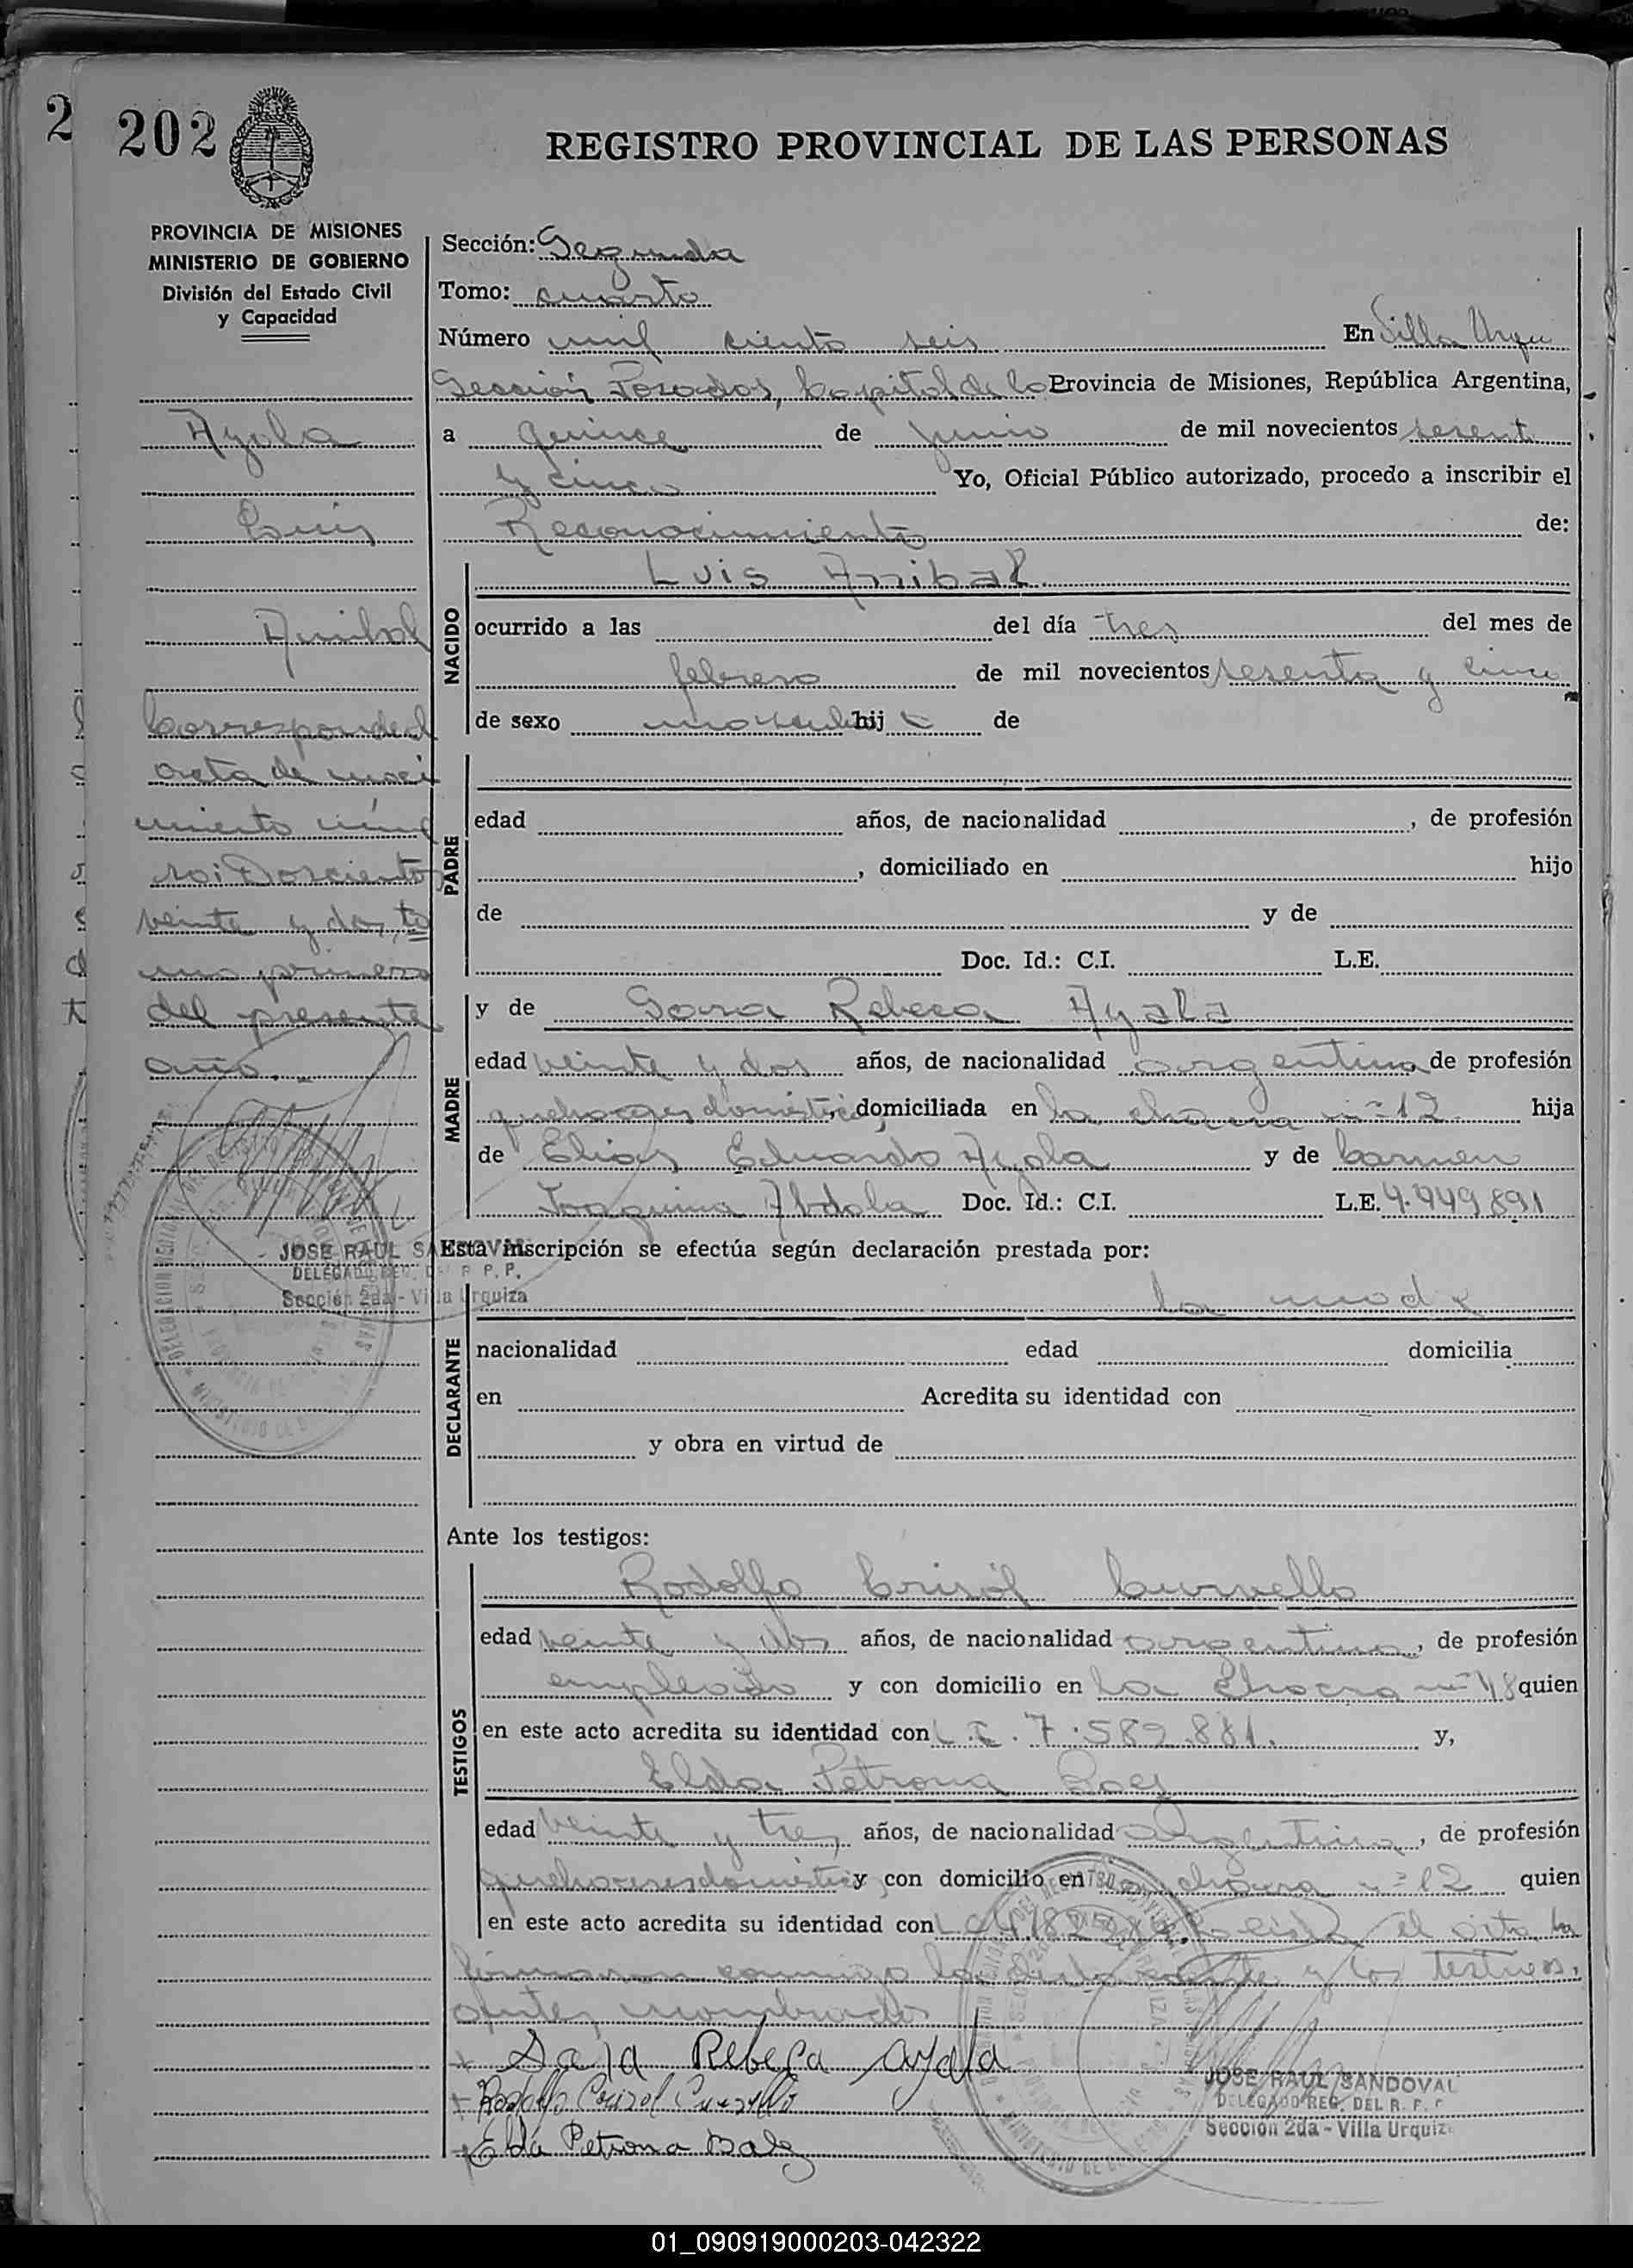 2 202
REGISTRO PROVINCIAL DE LAS PERSONAS
PROVINCIA DE MISIONES
MINISTERIO DE GOBIERNO
División del Estado Civil
y Capacidad
Ayala
Luis
Anibal
Corresponde al
acta de naci
miento núme
ro: Doscientos
veinte y dos, to
mo primero
del presente
año. -
JOSE RAUL SANDOVAL
DELEGADO REG. DEL R. P. P.
Sección 2da - Villa Urquiza
Sección: Segunda
Tomo: cuarto
Número mil ciento seis En Villa Urqui
Sección Posadas, Capital de la Provincia de Misiones, República Argentina,
a quince de junio de mil novecientos sesent
y cinco Yo, Oficial Público autorizado, procedo a inscribir el
Reconocimiento de:
NACIDO
Luis Anibal
ocurrido a las del día tres del mes de
febrero de mil novecientos sesenta y cinco
de sexo masculi hij o de
PADRE
edad años, de nacionalidad , de profesión
, domiciliado en hijo
de y de
Doc. Id.: C.I. L.E.
MADRE
y de Sara Rebeca Ayala
edad veinte y dos años, de nacionalidad argentina de profesión
quehaceres domésticos, domiciliada en la chacra nº 12 hija
de Elias Eduardo Ayala y de Carmen
Joaquina Doc. Id.: C.I. L.E. 4.949.891
Esta inscripción se efectúa según declaración prestada por:
DECLARANTE
la madre
nacionalidad edad domicilia
en Acredita su identidad con
y obra en virtud de
Ante los testigos:
TESTIGOS
Rodolfo Crisól
edad veinte y dos años, de nacionalidad argentina, de profesión
empleado y con domicilio en la Chacra nº 48 quien
en este acto acredita su identidad con 7.582.881. y,
Elda Petrona
edad veinte y tres años, de nacionalidad Argentina, de profesión
quehaceres domésticos y con domicilio en chacra nº 12 quien
en este acto acredita su identidad con el acta, la
firmaron conmigo y los testigos,
antes nombrados
Sara Rebeca Ayala
Rodolfo Crisol
Elda Petrona
JOSE RAUL SANDOVAL
DELEGADO REG. DEL R. P. P.
Sección 2da - Villa Urquiza
01_090919000203-042322